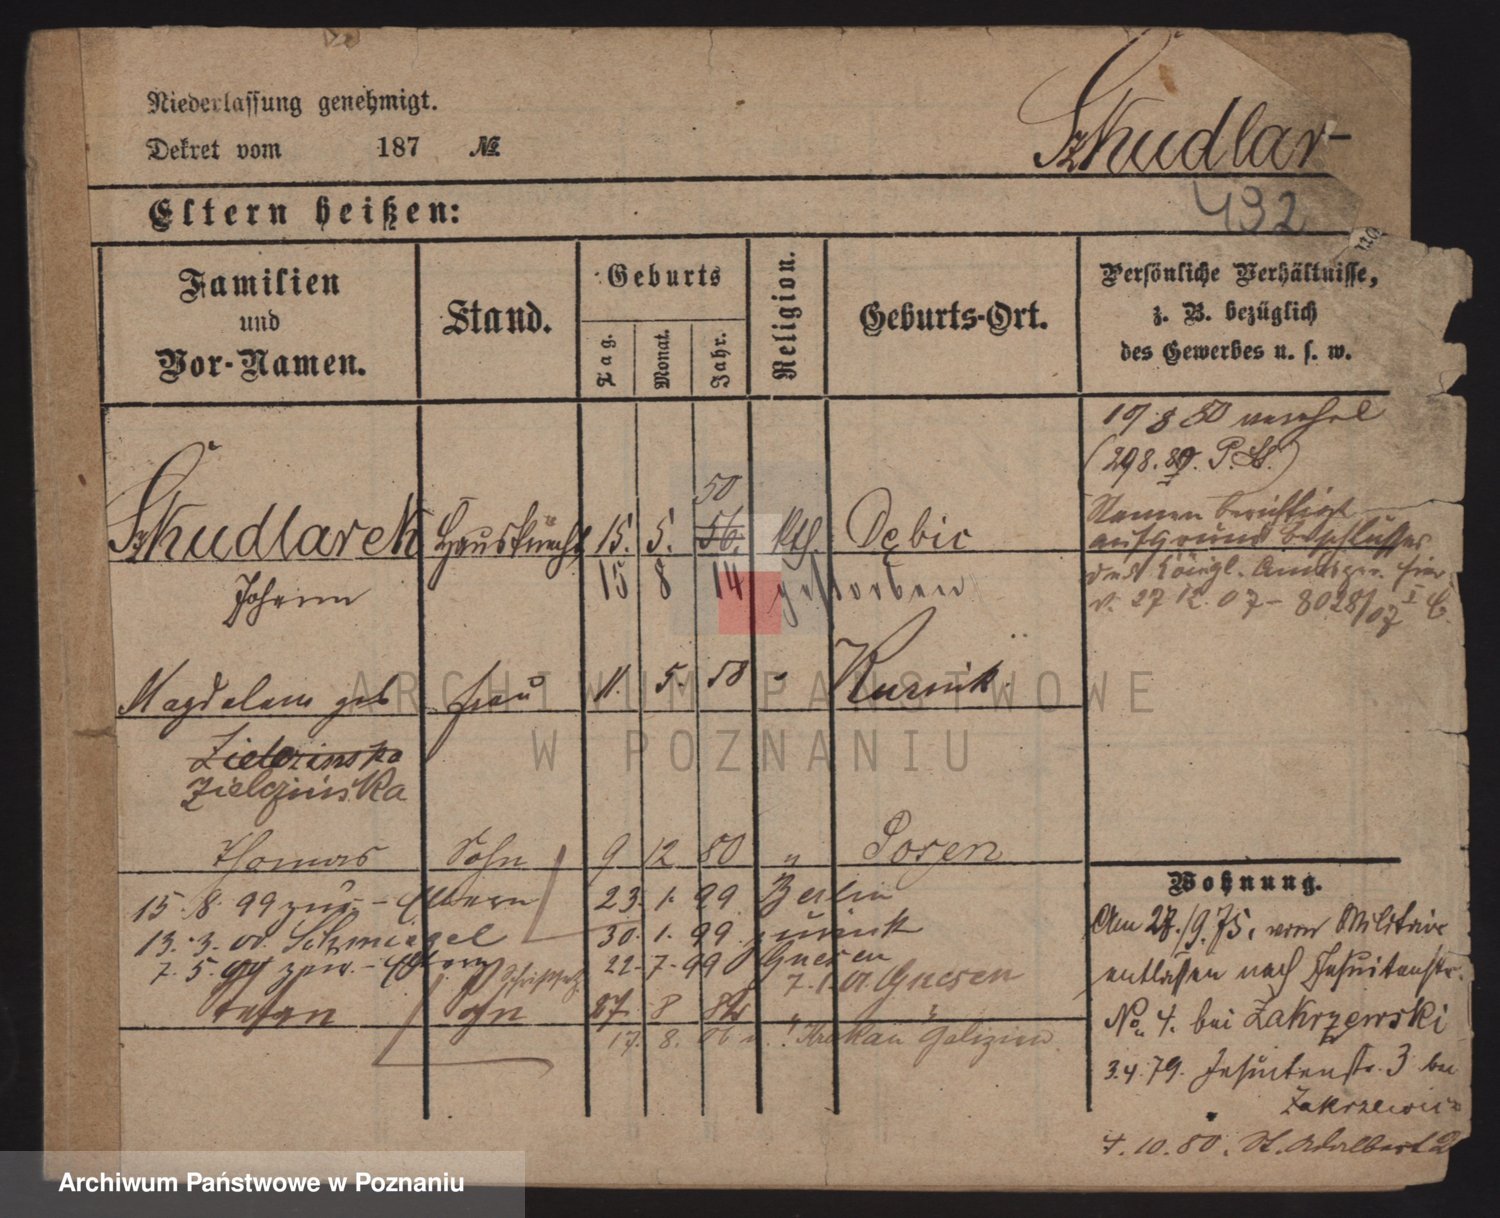 Niederlassung genehmigt.
Dekret vom 187 №
Szkudlar-
432
Eltern heißen:
Familien und Vor-Namen.
Stand.
Geburts
Tag.
Monat.
Jahr.
Religion.
Geburts-Ort.
Persönliche Verhältnisse,
z. B. bezüglich
des Gewerbes u. s. w.
19 8 80
(298.80. P. )
50
Szkudlarek Hausknecht 15. 5. 56. kth. Dębic
Johann
15 8 14 gestorben
Namen berichtigt
auf grund Beschlusses
des Königl. Amtsger. hier
v. 27 12. 07 - 8028/07
Magdalena geb Frau 11. 5. 58 " Kurnik
Zielezinska
Zielezińska
Thomas Sohn 9 12 80 " Posen
15. 8. 99 zur.- Eltern 23. 1. 99 Berlin
13. 3. 01. Schmiegel 30. 1. 99 zurück
7. 5. 99 zur.- Eltern 22- 7- 99 Gnesen
7. 1. 01 Gnesen
Stefan Sohn 27. 8 84 " "
17. 8. 06 n. Krakau Galizien
Wohnung.
Am 27./9. 75. vom Militair
entlassen nach Jesuitenstr.
No. 4. bei Zakrzewski
3.4.79. Jesuitenstr. 3 bei
Zakrzewski
4. 10. 80. St. Adalbert 2
ARCHIWUM PAŃSTWOWE
W POZNANIU
Archiwum Państwowe w Poznaniu